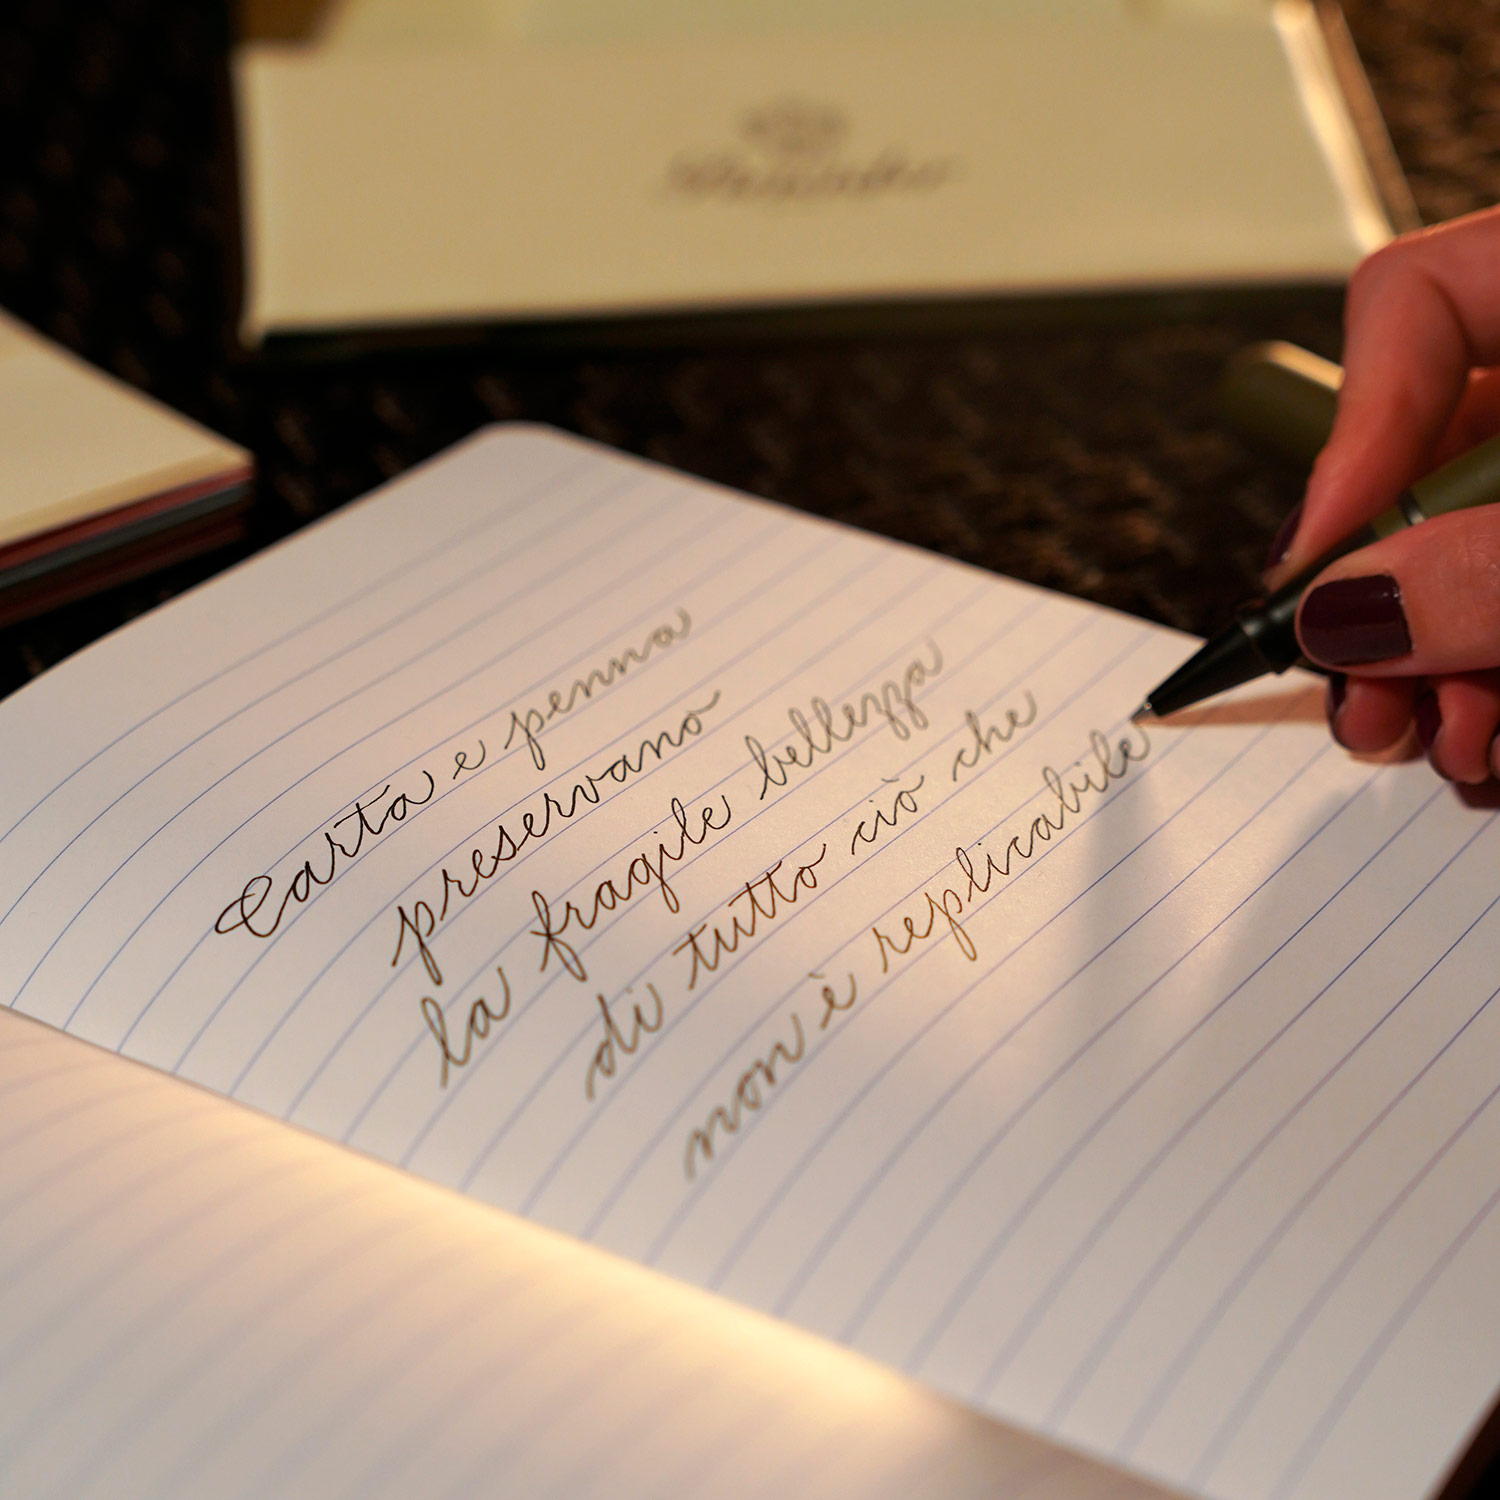 Carta e penna
preservano
la fragile bellezza
di tutto ciò che
non è replicabile